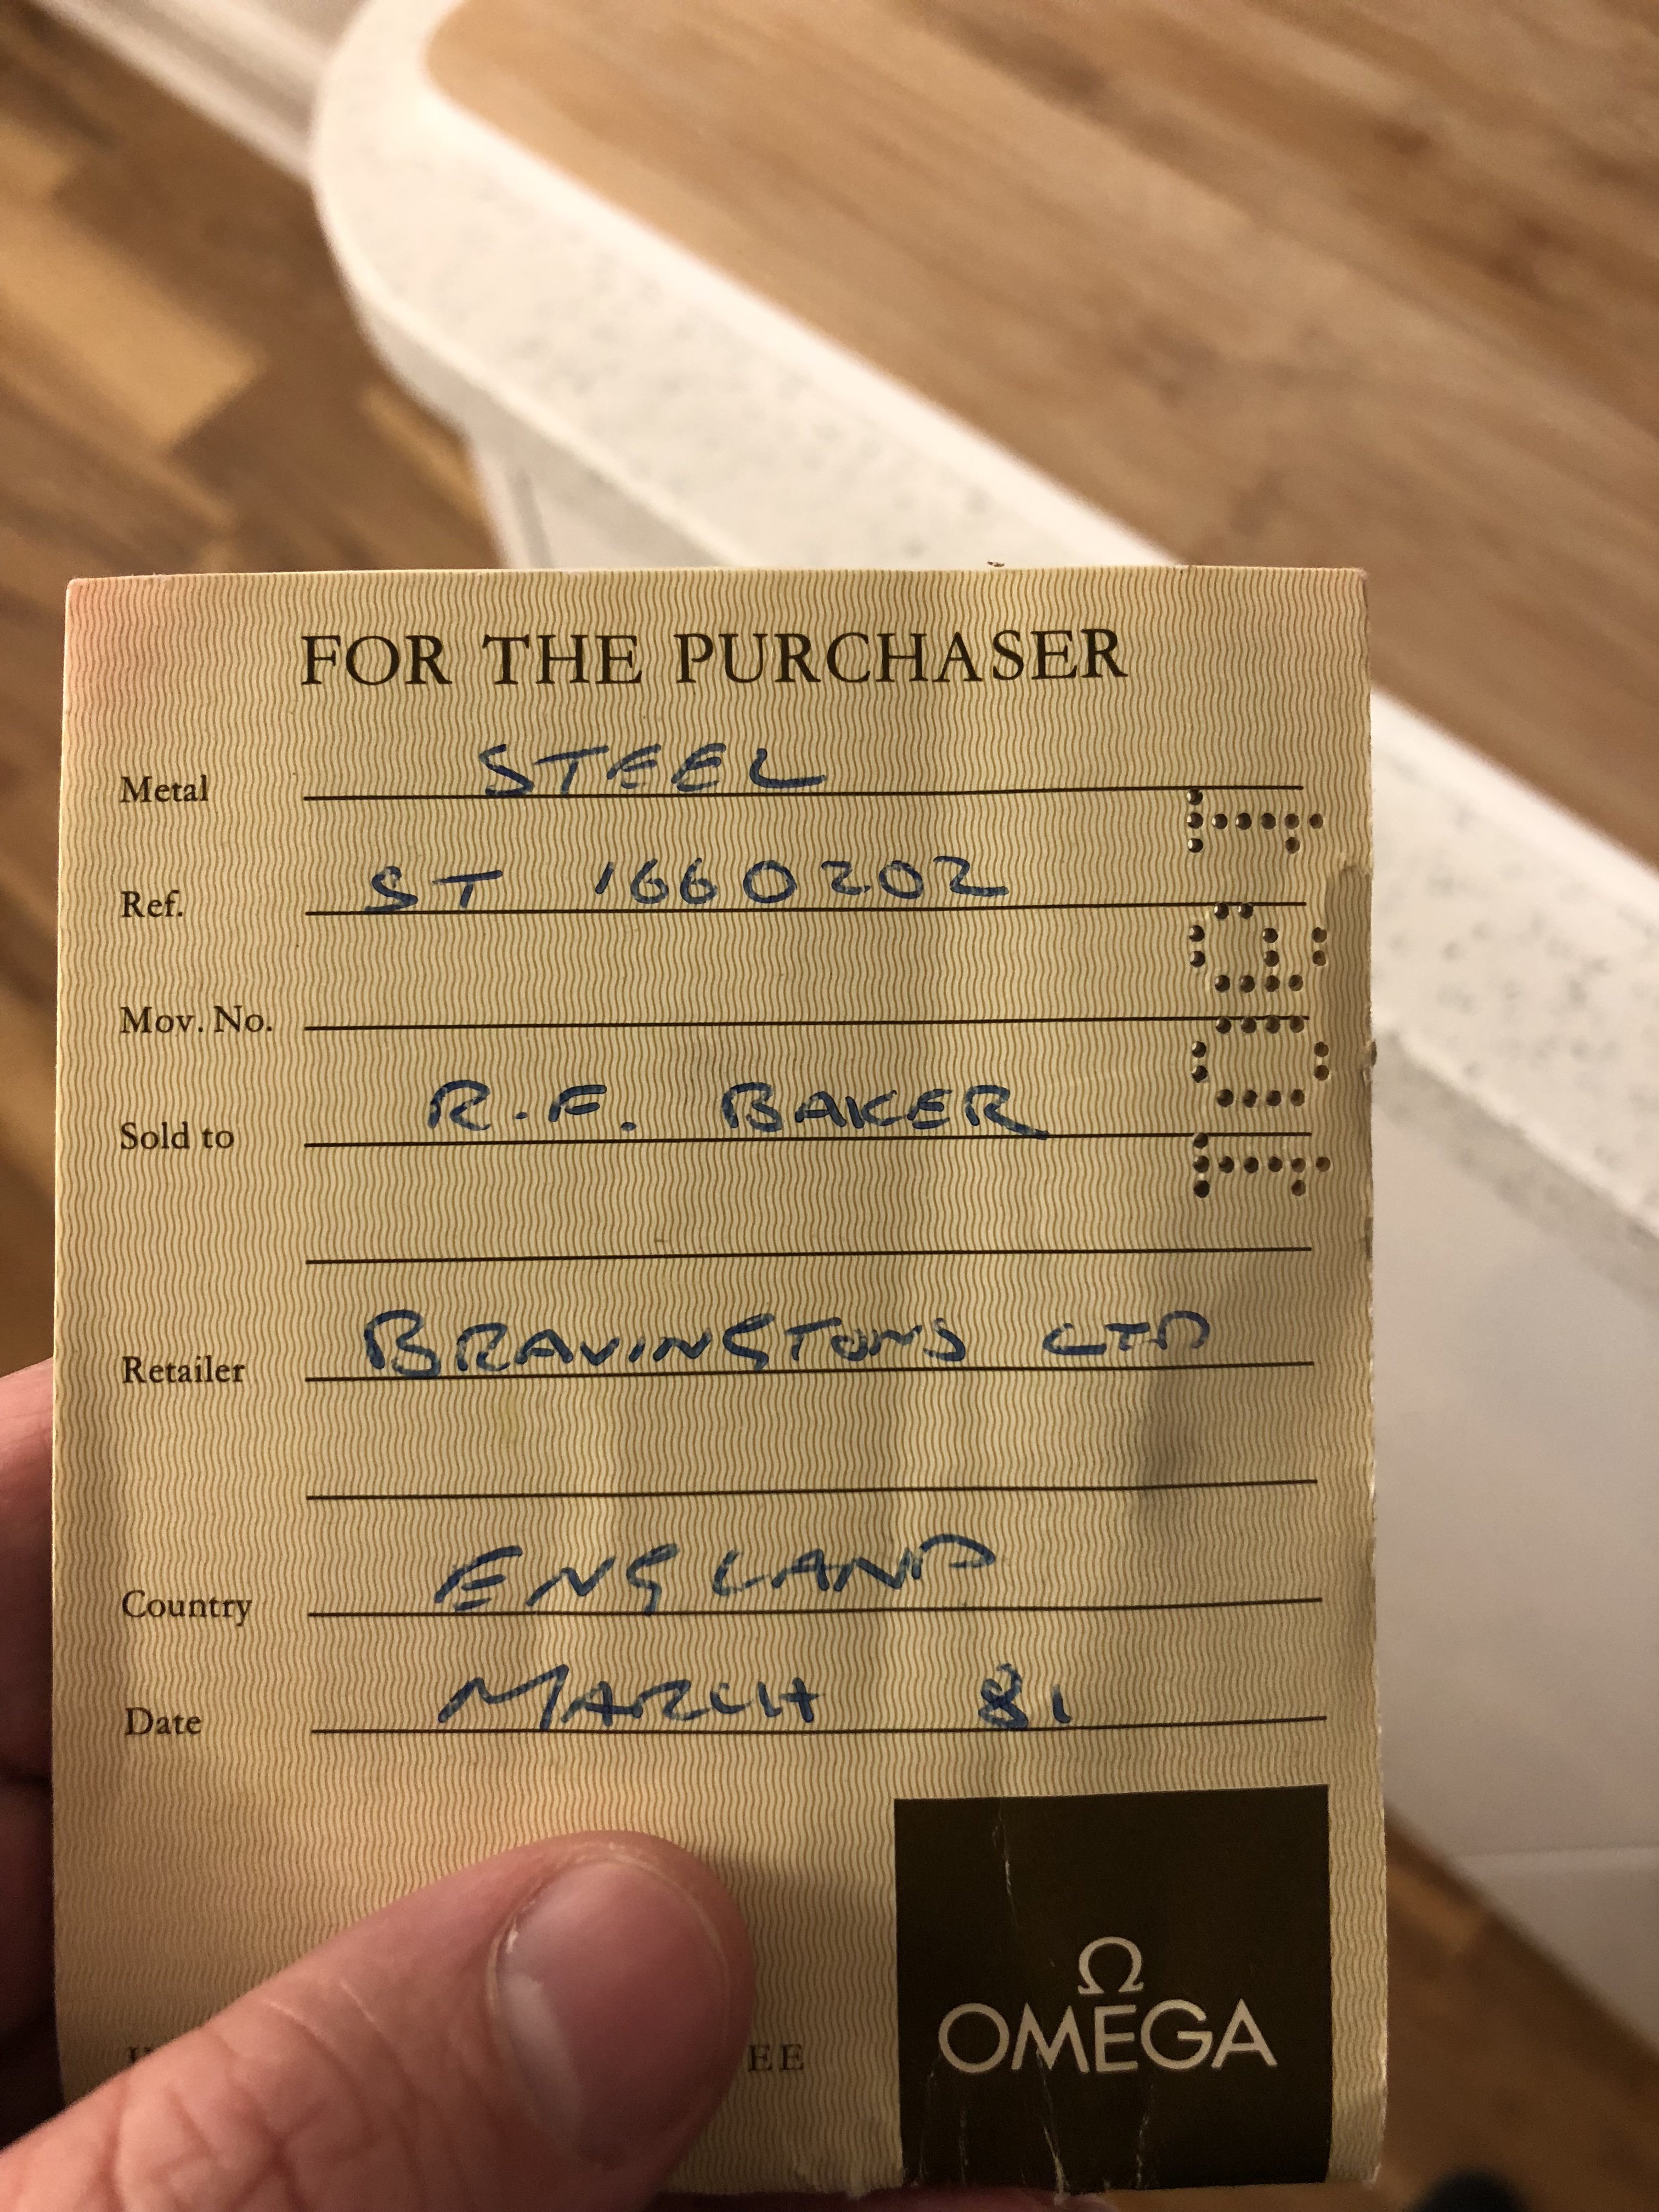 FOR THE PURCHASER
Metal STEEL
Ref. ST 1660202
Mov. No.
Sold to R.F. BAKER
Retailer BRAVINGTONS LTD
Country ENGLAND
Date MARCH 81
1061
Ω
OMEGA